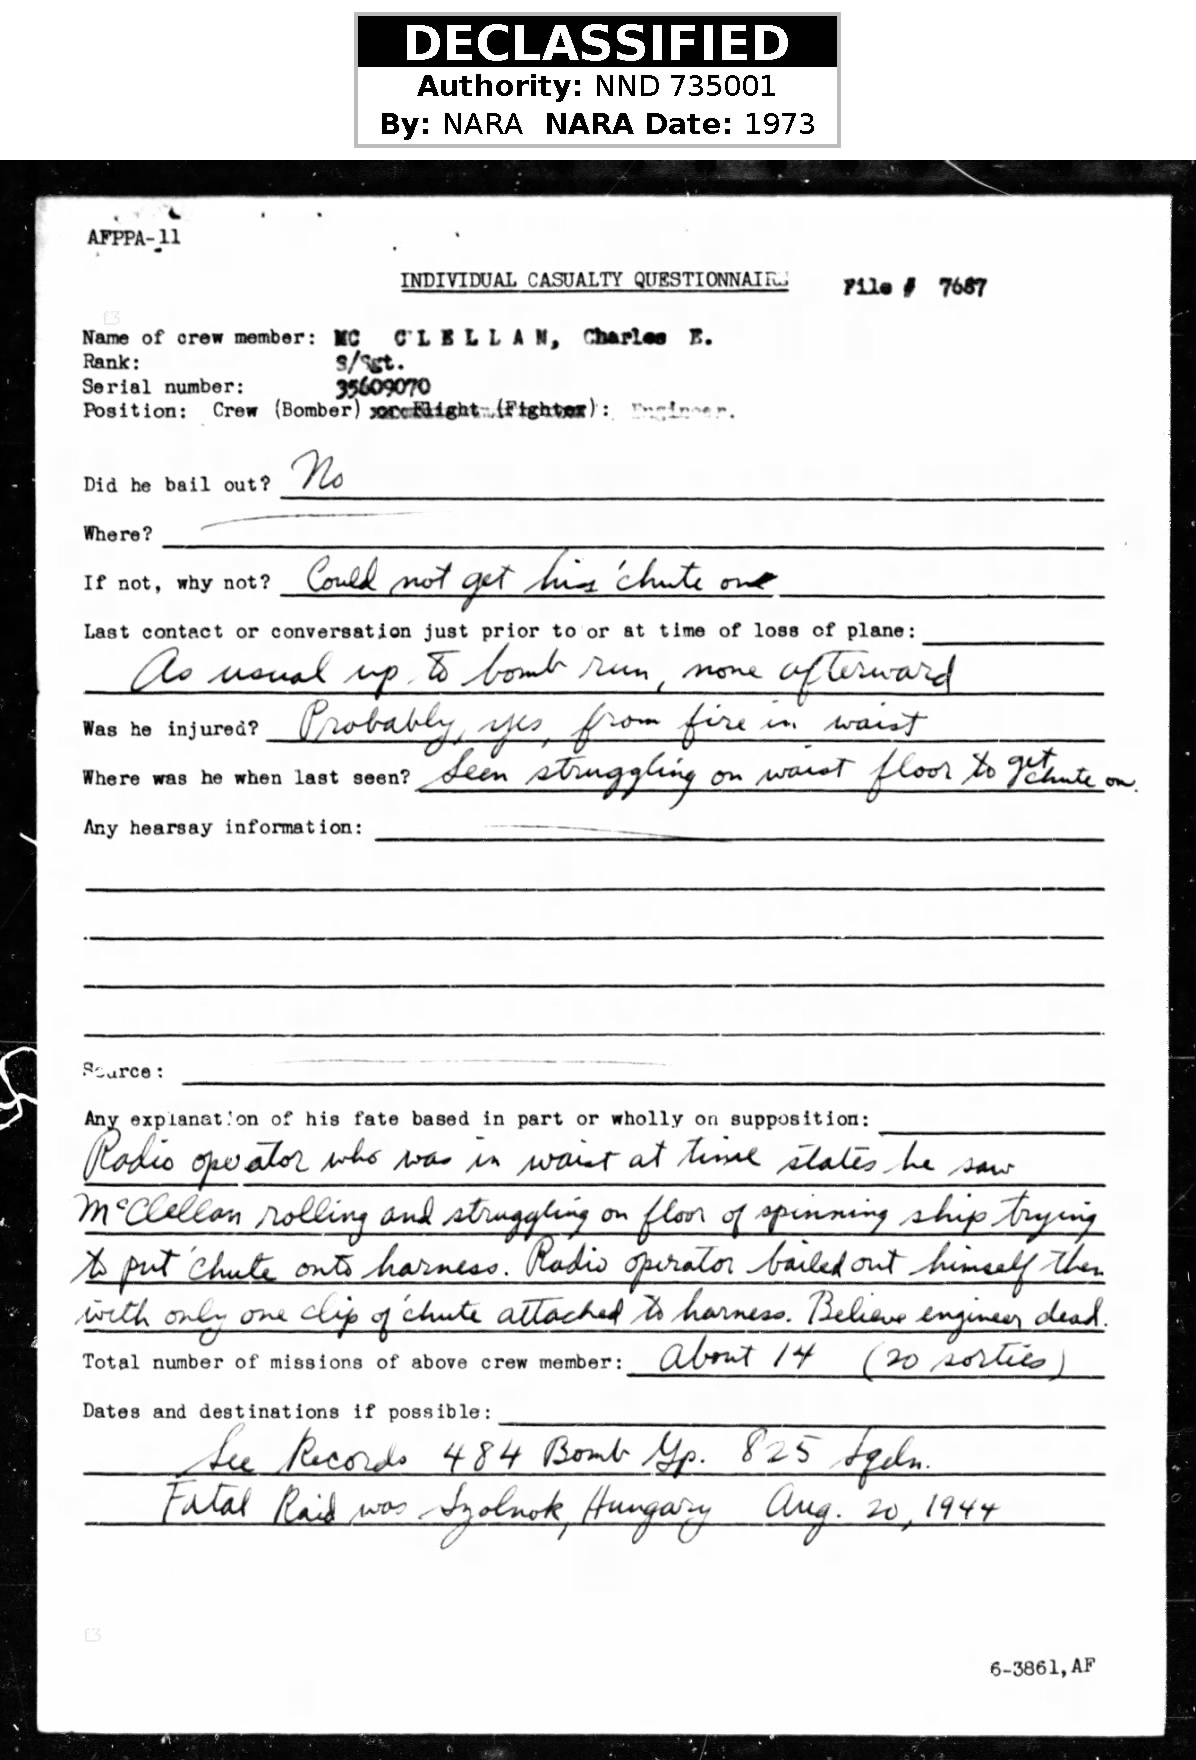 DECLASSIFIED
Authority: NND 735001
By: NARA NARA Date: 1973
AFPPA-11
INDIVIDUAL CASUALTY QUESTIONNAIRE
File # 7687
Name of crew member: MC CLELLAN, Charles E.
Rank: S/Sgt.
Serial number: 35609070
Position: Crew (Bomber) or Flight (Fighter): Engineer.
Did he bail out? No
Where?
If not, why not? Could not get his 'chute on
Last contact or conversation just prior to or at time of loss of plane:
As usual up to bomb run, none afterward
Was he injured? Probably, yes, from fire in waist
Where was he when last seen? Seen struggling on waist floor to get chute on.
Any hearsay information:
Source:
Any explanation of his fate based in part or wholly on supposition:
Radio operator who was in waist at time states he saw
McClellan rolling and struggling on floor of spinning ship trying
to put 'chute onto harness. Radio operator bailed out himself then
with only one clip of 'chute attached to harness. Believe engineer dead.
Total number of missions of above crew member: About 14 (20 sorties)
Dates and destinations if possible:
See Records 484 Bomb Gp. 825 Sqdn.
Fatal Raid was Szolnok, Hungary Aug. 20, 1944
6-3861,AF